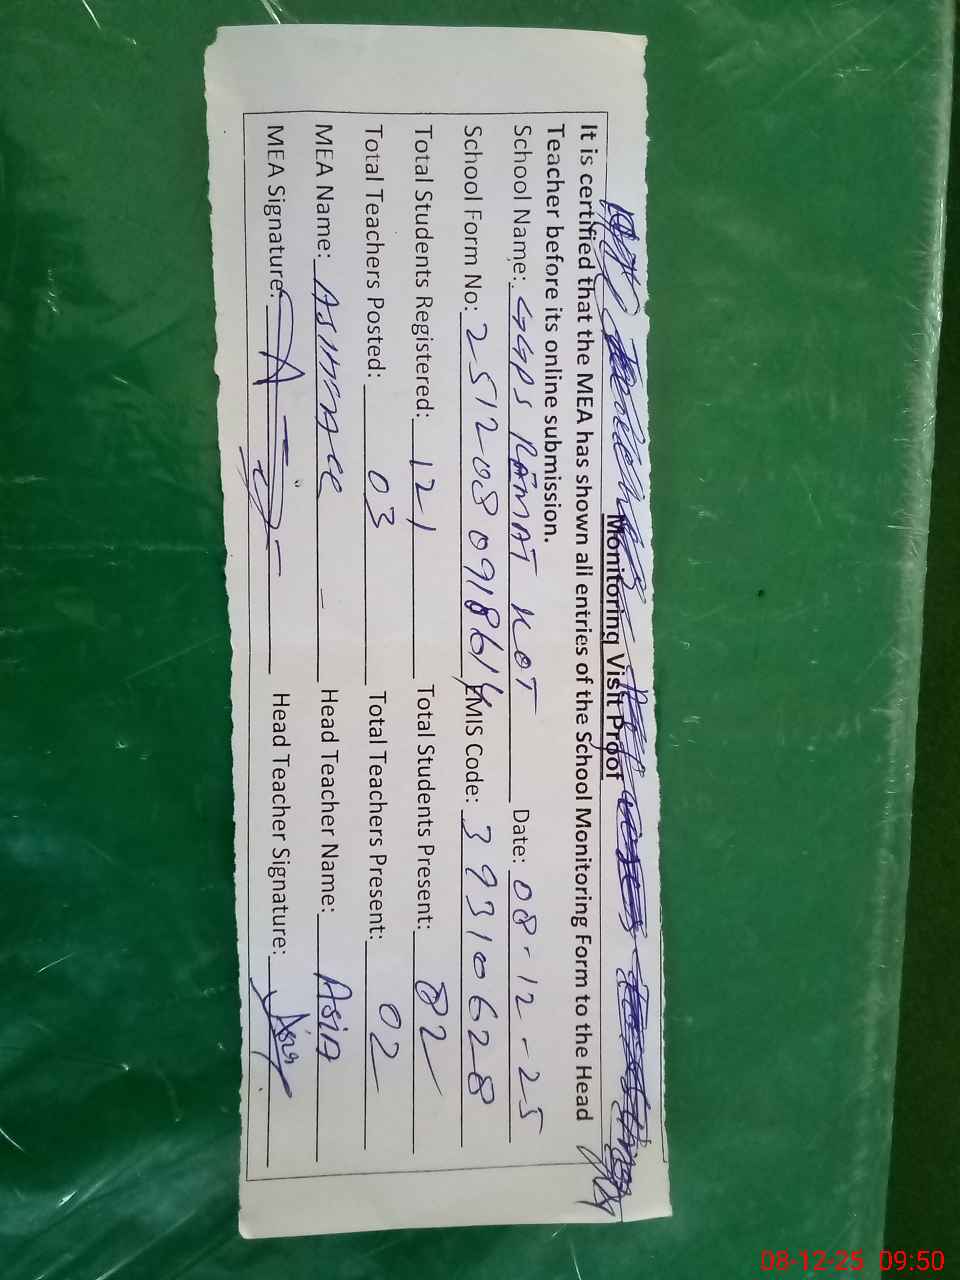 Monitoring Visit Proof
It is certified that the MEA has shown all entries of the School Monitoring Form to the Head
Teacher before its online submission.
School Name: GGPS RAMAT KOT Date: 08-12-25
School Form No: 2512080918614 EMIS Code: 39310628
Total Students Registered: 121 Total Students Present: 82
Total Teachers Posted: 03 Total Teachers Present: 02
MEA Name: Head Teacher Name: Asia
MEA Signature: Head Teacher Signature: Asia
08-12-25 09:50